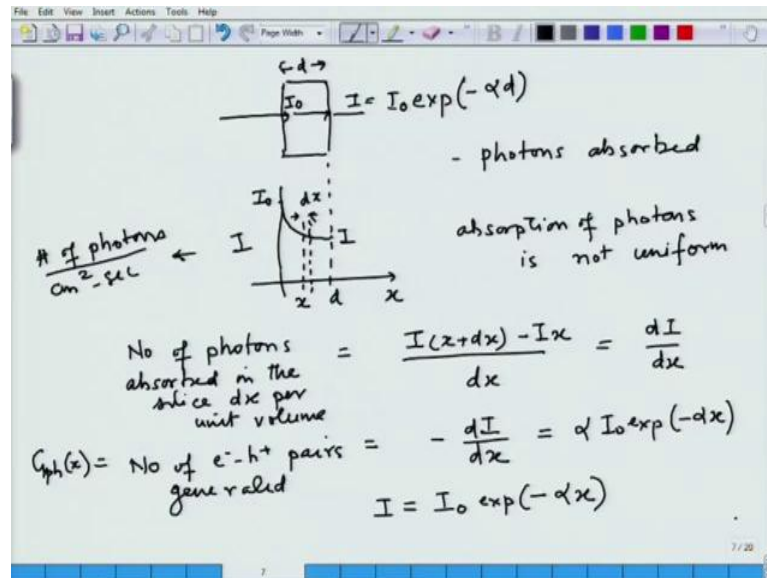 File Edit View Insert Actions Tools Help
Page Width
B I
← d →
I₀ I = I₀ exp(-αd)
- photons absorbed
I₀ dx
# of photons / cm² - sec ← I I
absorption of photons
is not uniform
x d x
No of photons = I(x+dx) - Ix / dx = dI / dx
absorbed in the
slice dx per
unit volume
Gph(x) = No of e⁻-h⁺ pairs = - dI / dx = α I₀ exp(-αx)
generated
I = I₀ exp(-αx)
7/20
7